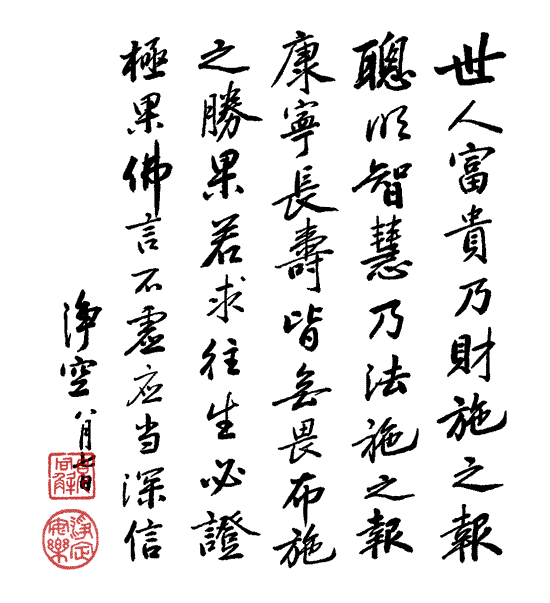 世人富貴乃財施之報
聰明智慧乃法施之報
康寧長壽皆無畏布施
之勝果若求往生必證
極果佛言不虛应当深信
淨空八月七日